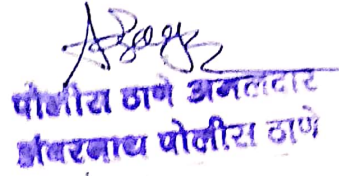 पोलीस ठाणे अमलदार
अंबरनाथ पोलीस ठाणे